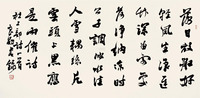 落日放船好
轻風生浪遲
竹深留客處
荷净納凉時
公子調冰水
佳人雪藕絲
片雲頭上黑應
是雨催詩
杜工部詩一首